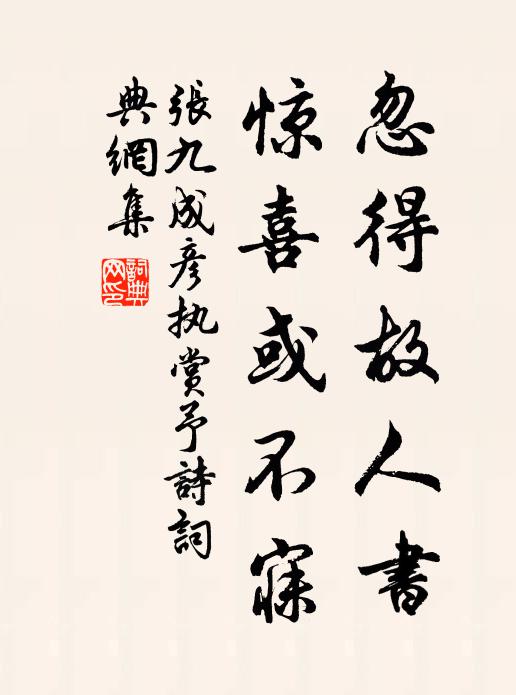 忽得故人書
惊喜或不寐
張九成彦执賞予詩詞
典網集
詞典
网印